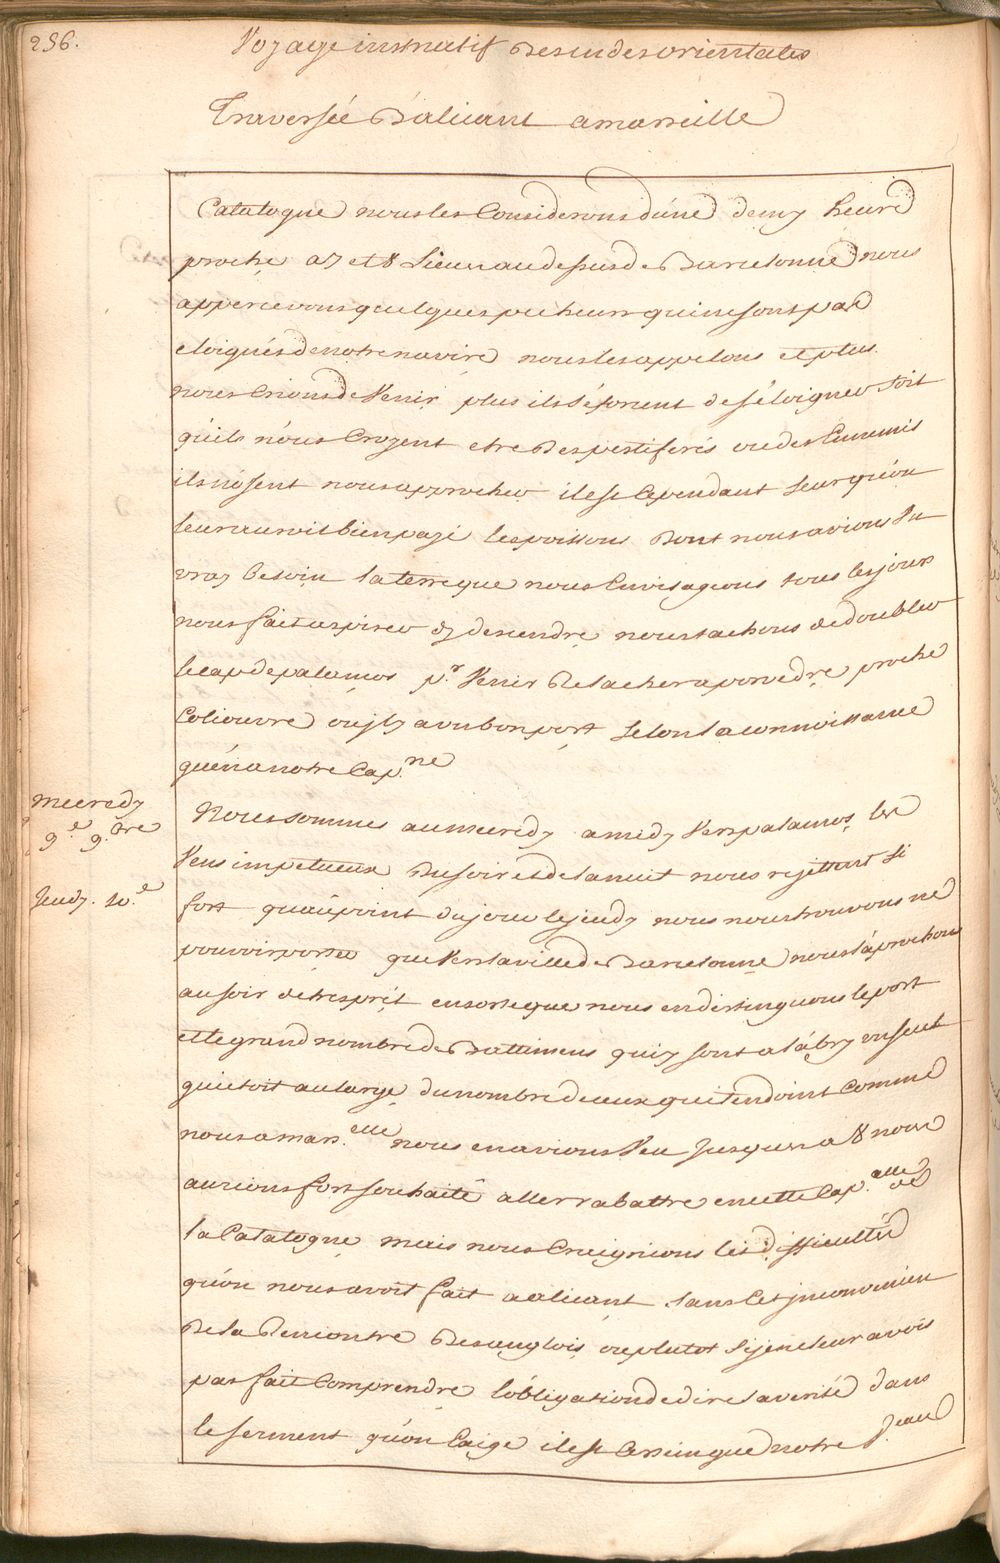 256.
Voyage instructif Des indes orientales
Traversée D'alicant a marseille
Catalogne nous les Considerons d'une demy heure
proche a 7 et 8 Lieux au dessus de Barcelonne nous
appercevons quelques pecheurs qui ne sont pas
eloignés de notre navire nous les appelons et plus
nous Crions de Venir plus ils s'éforcent de s'éloigner soit
qu'ils nous Croyent etre Des pestiferés ou des Ennemis
ils n'ósent nous approcher il est Cependant seur qu'on
leur auroit bien payé les poissons Dont nous avions un
vray besoin la terre que nous Envisageons tous les jours
nous fait aspirer d'y descendre nous tachons de doubler
le cap de palamos p.r Venir Relacher a porvedre proche
Coliouvre ou jl y a un bon port selon la connoissance
qu'en a notre Cap.ne
mecredy
9.e 9.bre
Nous sommes au mecredy a midy Vers palamos, les
Vens impetueux Du soir et de la nuit nous rejettent si
Jeudy. 10.e
fort qu'au point du jour le jeudy nous nous trouvons ne
pouvoir porter que Vers la ville de Barcelonne nous l'áprochons
au soir de tres prét ensorte que nous en distinguons le port
et le grand nombre de Battimens qui y sont a l'ábry un seul
qui etoit au large du nombre de ceux qui tendoint Comme
nous a mars.elle nous en avions Veu jusques a 8 nous
aurions fort souhaité aller rabattre en cette Cap.alle de
la Catalogne mais nous Craignions les difficultés
qu'on nous avoit fait a alicant sans Cet jnconvenien
De la Rencontre Des anglois ou plutot si je ne leur avois
pas fait Comprendre l'óbligation de dire la verité dans
le serment qu'on Exige il est Certain que notre V.eau